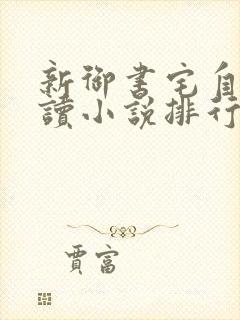 新御書宅自
讀小說排行
賈富